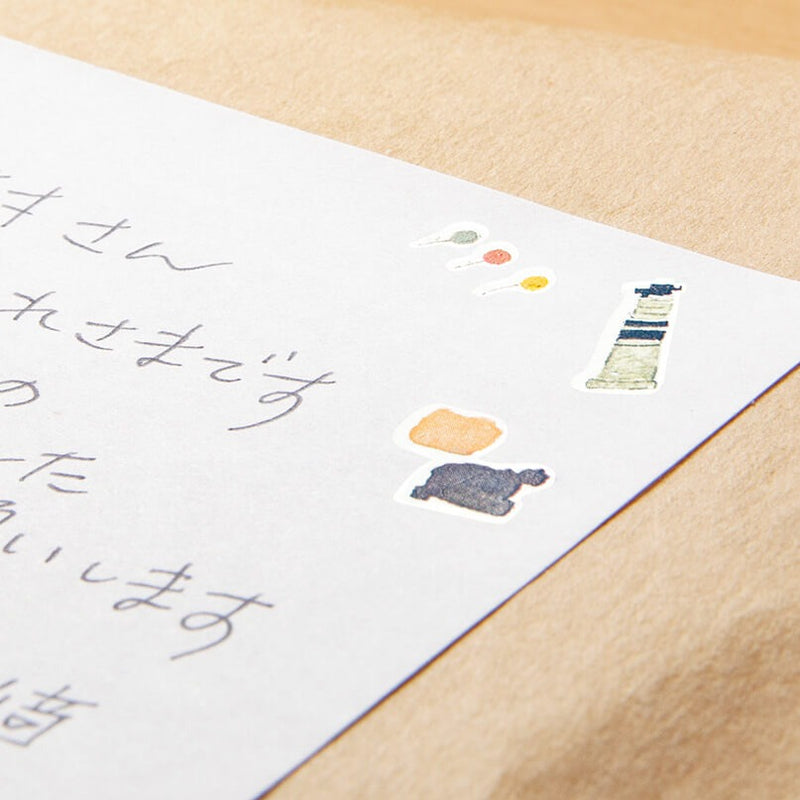 きさん
れさまです
の
した
いします
崎